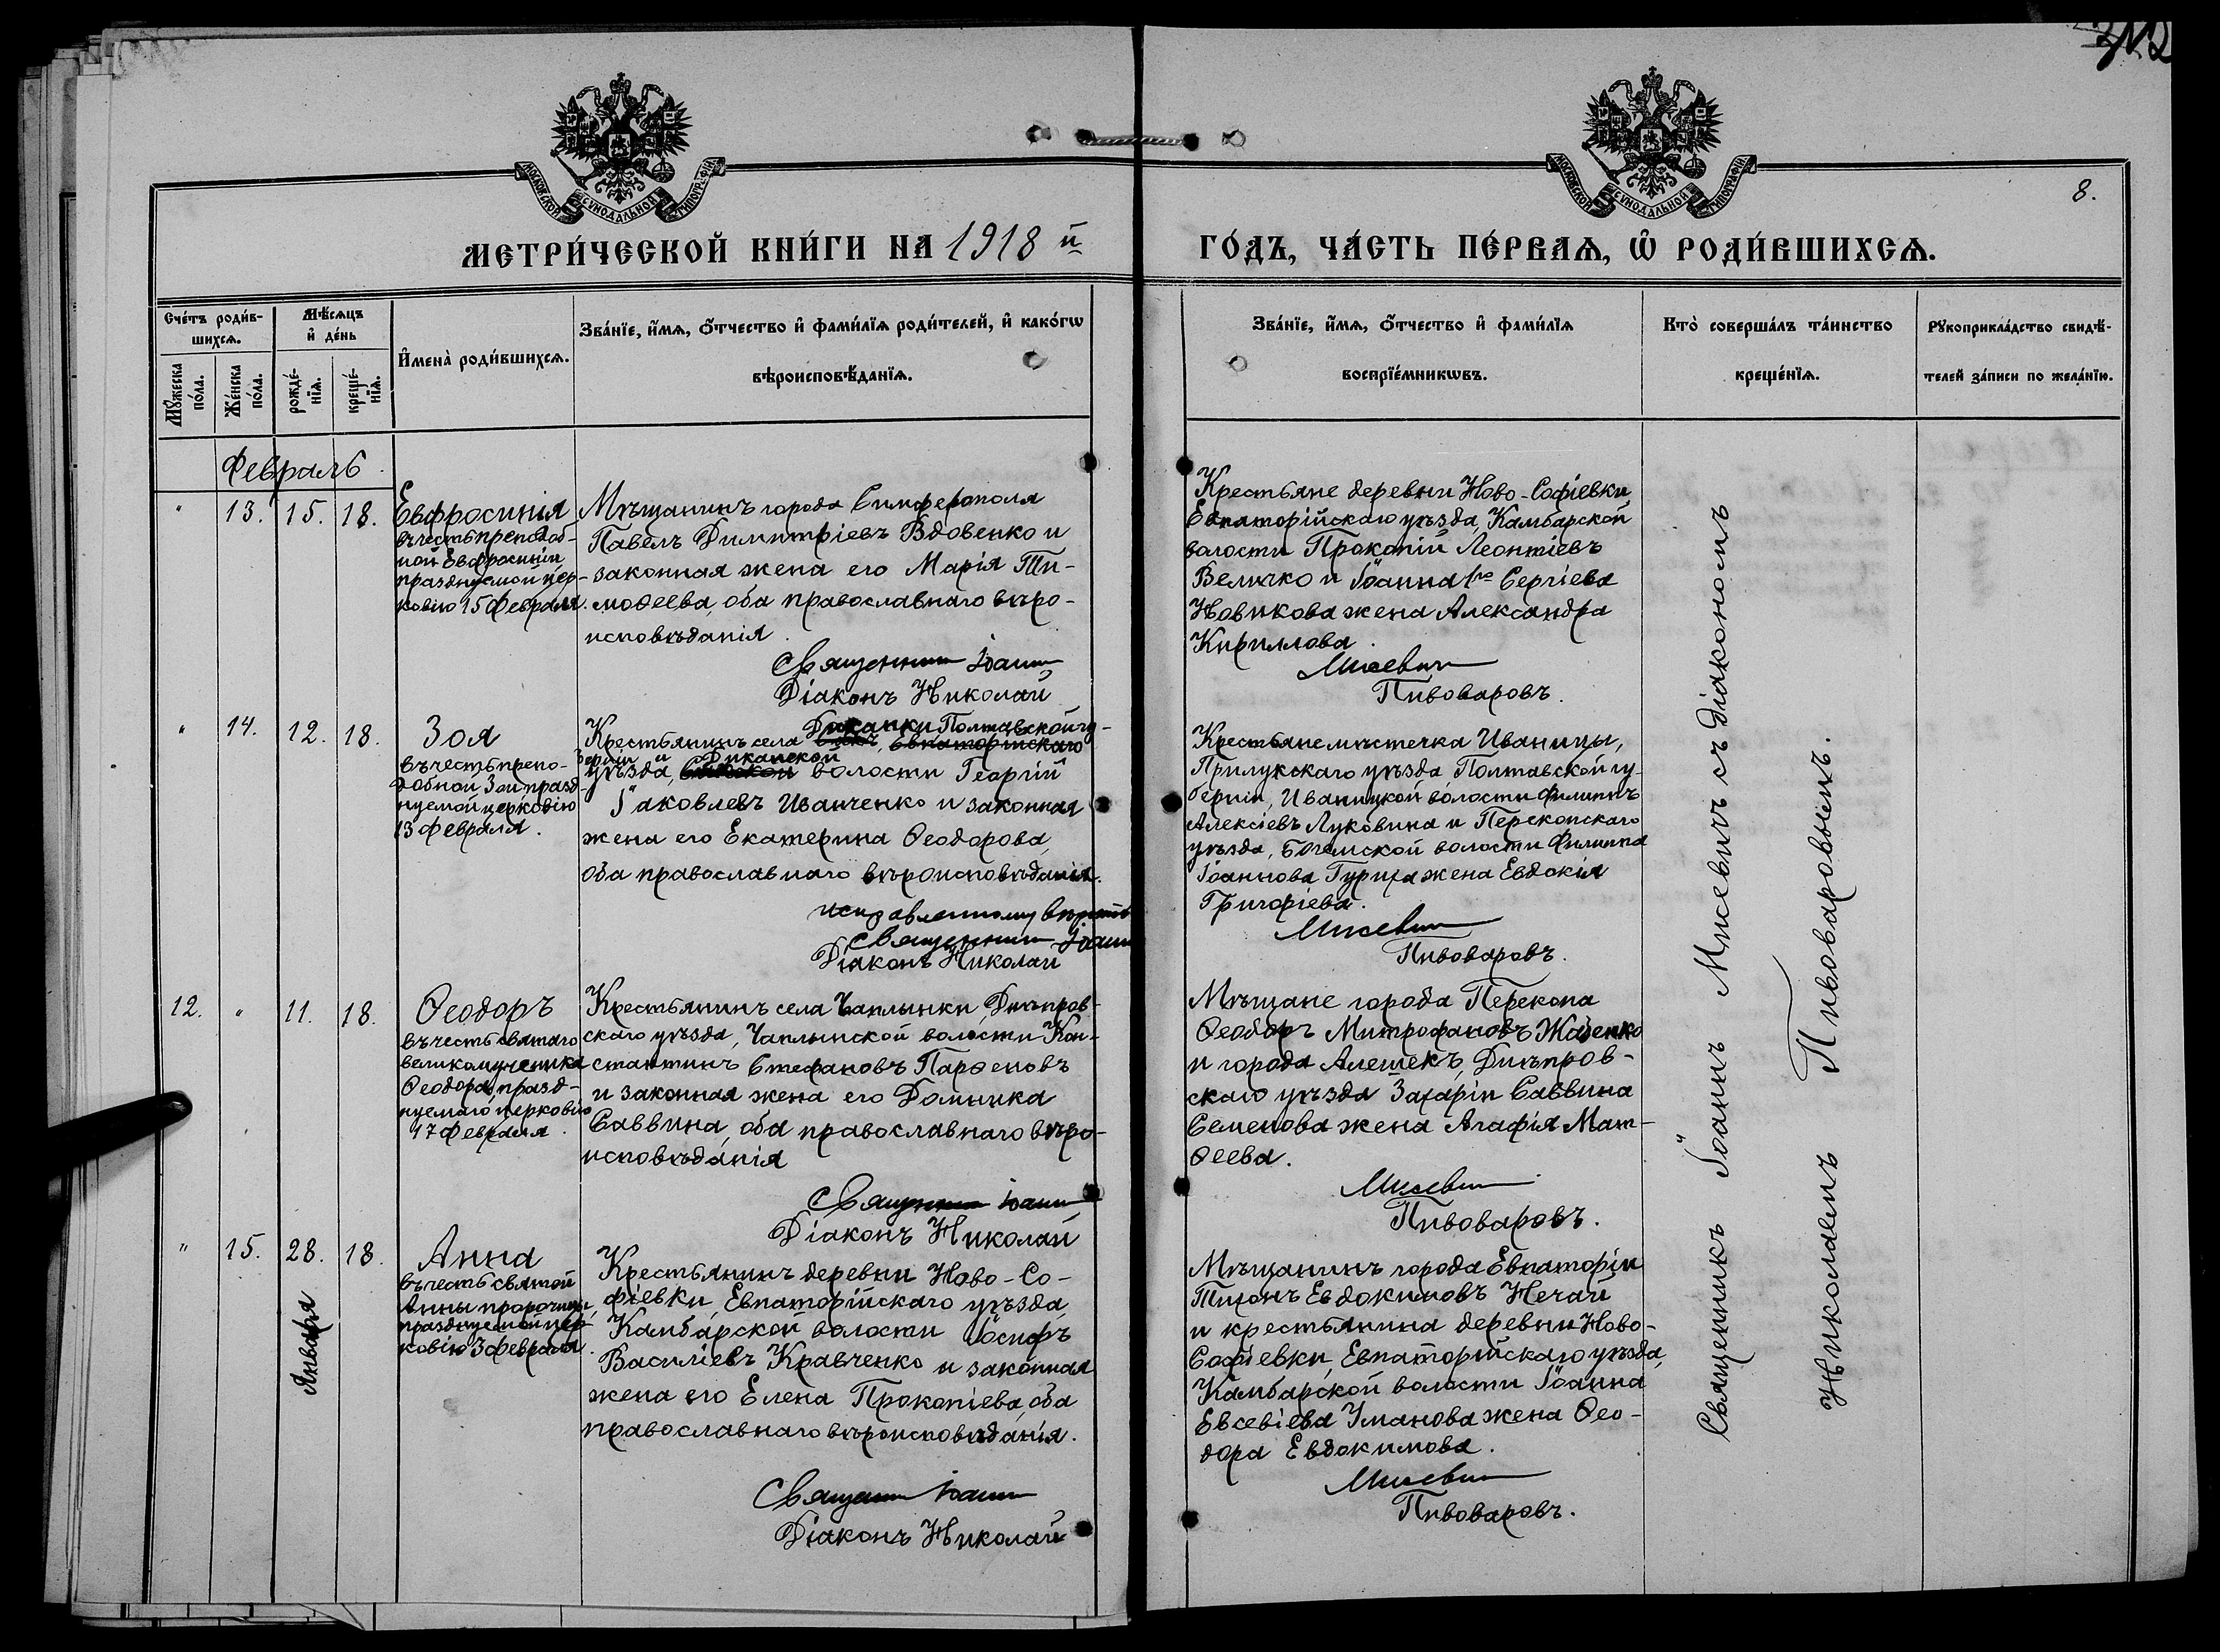 312
8.
МОСКОВСКОЙ СѴНОДАЛЬНОЙ ТИПОГРАФІИ
МОСКОВСКОЙ СѴНОДАЛЬНОЙ ТИПОГРАФІИ
МЕТРИ́ЧЕСКОЙ КНИ́ГИ НА 1918 й
ГО́ДЪ, ЧА́СТЬ ПЕ́РВАѦ, Ѽ РОДИ́ВШИХСѦ.
Сче́тъ роди́в-
шихсѧ.
Мꙋ́жеска по́ла.
Же́нска по́ла.
Мѣ́сѧцъ
и҆ де́нь
рожде́-
нїѧ.
креще́-
нїѧ.
И҆мена̀ роди́вшихсѧ.
Зва́нїе, и҆́мѧ, ѻ҆́тчество и҆ фами́лїѧ роди́телей, и҆ како́гѡ
вѣроисповѣ́данїѧ.
Зва́нїе, и҆́мѧ, ѻ҆́тчество и҆ фами́лїѧ
воспрїе́мникѡвъ.
Кто̀ соверша́лъ та́инство
креще́нїѧ.
Рꙋкоприкла́дство свидѣ́-
телей за́писи по жела́нїю.
Февраль
" 13. 15. 18.
Евфросинія
въ честь преподоб-
ной Евфросиніи
празднуемой цер-
ковію 15 февраля.
Мѣщанинъ города Симферополя
Павелъ Димитріевъ Вдовенко и
законная жена его Марія Ти-
моѳеева, оба православнаго вѣро-
исповѣданія.
Священникъ Іоаннъ
Діаконъ Николай
Крестьяне деревни Ново-Софіевки,
Евпаторійскаго уѣзда, Камбарской
волости Прокопій Леонтіевъ
Величко и Іоанна 1го Сергіева
Новикова жена Александра
Кириллова.
Мисевичъ
Пивоваровъ.
" 14. 12. 18.
Зоя
въ честь препо-
добной Зои празд-
нуемой церковію
13 февраля.
Диканьки Полтавской гу-
Крестьянинъ села Евпаторійскаго
берніи и Диканской
уѣзда, волости Георгій
Іаковлевъ Иванченко и законная
жена его Екатерина Ѳеодорова,
оба православнаго вѣроисповѣданія.
исправленному вѣрить
Священникъ Іоаннъ
Діаконъ Николай
Крестьяне мѣстечка Иваницы,
Прилукскаго уѣзда Полтавской гу-
берніи, Иваницкой волости Филиппъ
Алексіевъ Луковина и Перекопскаго
уѣзда, Богемской волости Филиппа
Іоаннова жена Евдокія
Григоріева.
Мисевичъ
Пивоваровъ.
12. " 11. 18.
Ѳеодоръ
въ честь святаго
великомученика
Ѳеодора, празд-
нуемаго церковію
17 февраля.
Крестьянинъ села Чаплынки, Днѣпров-
скаго уѣзда, Чаплынской волости Кон-
стантинъ Стефановъ Парѳеновъ
и законная жена его Домника
Саввина, оба православнаго вѣро-
исповѣданія
Священникъ Іоаннъ
Діаконъ Николай
Мѣщане города Перекопа
Ѳеодоръ Митрофановъ
и города Алешекъ, Днѣпров-
скаго уѣзда Захаріи Саввина
Семенова жена Агафія Мат-
ѳеева.
Мисевичъ
Пивоваровъ.
" 15. 28. 18.
Января
Анна
въ честь святой
Анны пророчицы,
празднуемой цер-
ковію 3 февраля.
Крестьянинъ деревни Ново-Со-
фіевки, Евпаторійскаго уѣзда,
Камбарской волости Іосифъ
Василіевъ Кравченко и законная
жена его Елена Прокопіева, оба
православнаго вѣроисповѣданія.
Священникъ Іоаннъ
Діаконъ Николай
Мѣщанинъ города Евпаторіи
Тихонъ Евдокимовъ Нечай
и крестьянина деревни Ново-
Софіевки, Евпаторійскаго уѣзда,
Камбарской волости Іоанна
Евсевіева Уманова жена Ѳео-
дора Евдокимова.
Мисевичъ
Пивоваровъ.
Священникъ Іоаннъ Мисевичъ съ діакономъ
Николаемъ Пивоваровымъ.